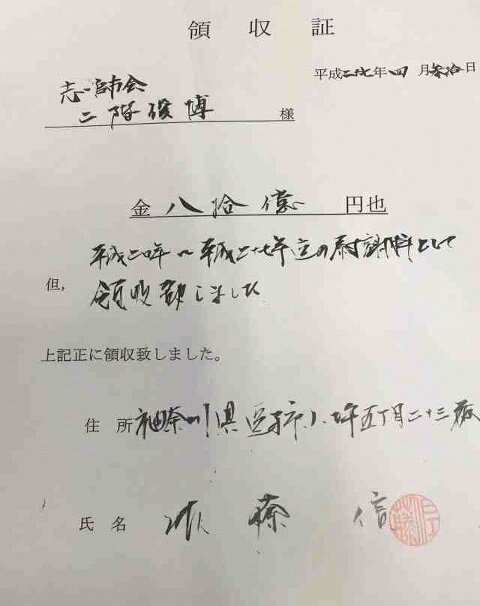 領収証
平成二七年四月参拾日
志師会
二階俊博 様
金 八拾億 円也
平成二〇年〜平成二十七年迄の謝料として
但, 領収致しました
上記正に領収致しました。
住所 神奈川県逗子市小坪五丁目二十三
氏名 信